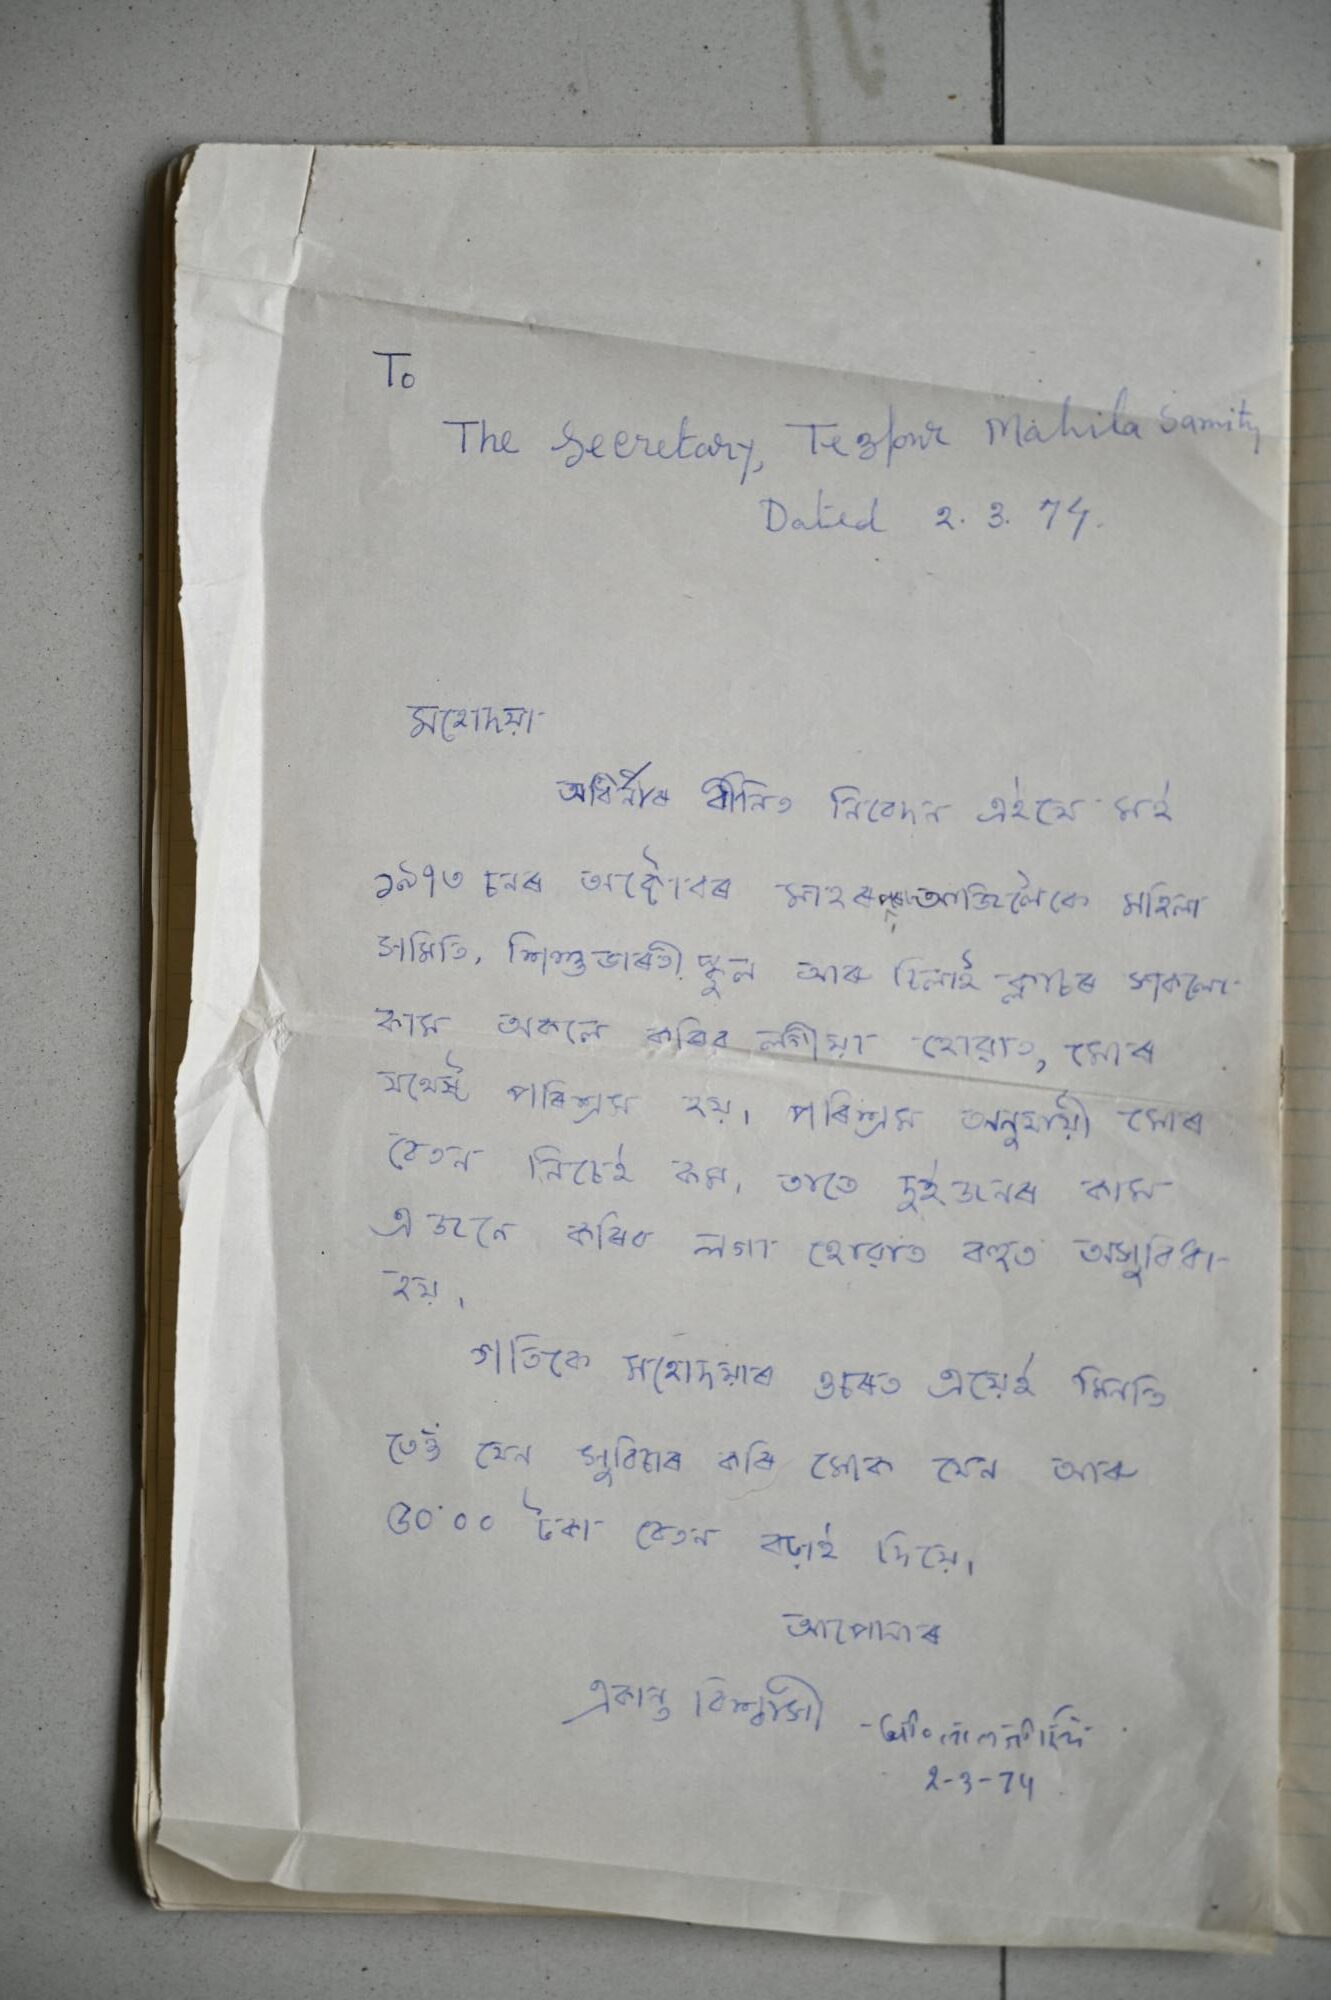 To
The Secretary, Tezpur Mahila Samity
Dated 2. 3. 74.
মহোদয়া
অধিনীৰ বীনিত নিবেদন এইযে মই
১৯৭৩ চনৰ অক্টোবৰ মাহৰ পৰা আজিলৈকে মহিলা
সমিতি, শিশুভাৰতী স্কুল আৰু চিলাই ক্লাচৰ সকলো
কাম অকলে কৰিব লগীয়া হোৱাত, মোৰ
যথেষ্ট পৰিশ্ৰম হয়। পৰিশ্ৰম অনুযায়ী মোৰ
বেতন নিচেই কম। তাতে দুইজনৰ কাম
এজনে কৰিব লগা হোৱাত বহুত অসুবিধা
হয়।
গতিকে মহোদয়াৰ ওচৰত এয়েই মিনতি
তেওঁ যেন সুবিচাৰ কৰি মোক যেন আৰু
৩০·০০ টকা বেতন বঢ়াই দিয়ে।
আপোনাৰ
একান্ত বিশ্বাসী
2-3-74